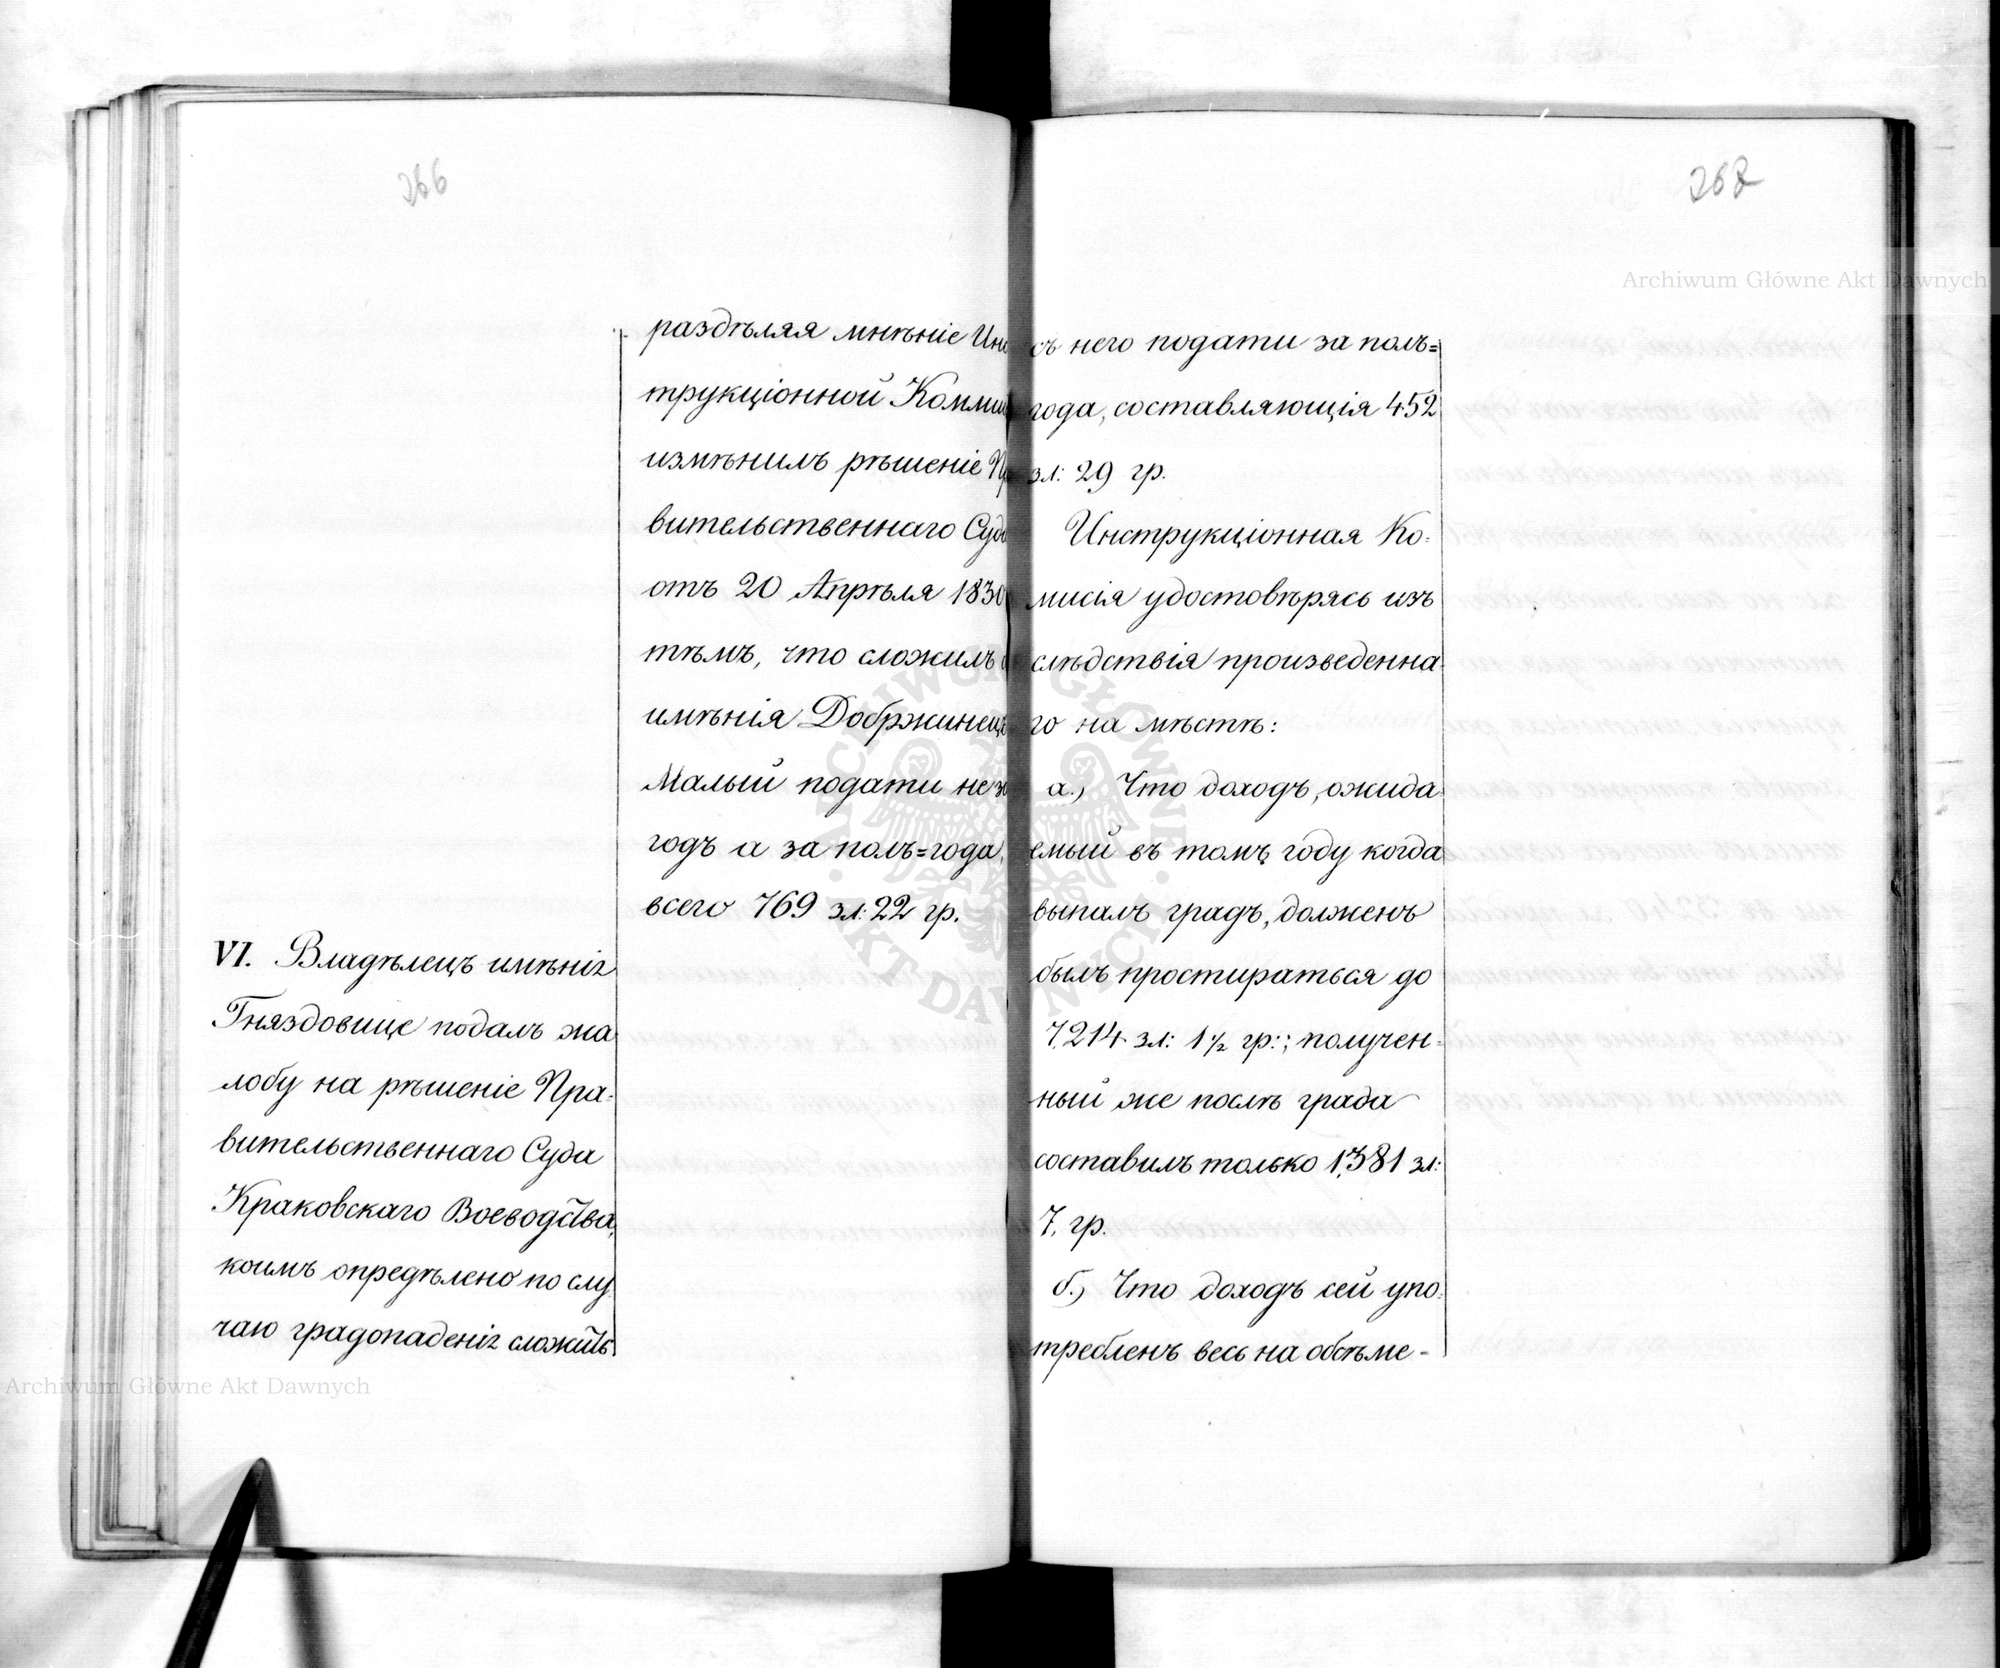 266
раздѣляя мнѣніе Инс
трукціонной Комми
измѣнилъ рѣшеніе Пр
вительственнаго Суда
отъ 20 Апрѣля 1830
тѣмъ, что сложилъ
имѣнія Добржинец
Малый подати не за
годъ а за полъ=года,
всего 769 зл: 22 гр.
VI. Владѣлецъ имѣнія
Гняздовице подалъ жа
лобу на рѣшеніе Пра-
вительственнаго Суда
Краковскаго Воеводства,
коимъ опредѣлено по слу
чаю градопаденія сложить
262
съ него подати за полъ=
года, составляющія 452
зл: 29 гр.
Инструкціонная Ко-
мисія удостовѣрясь изъ
слѣдствія произведенна-
го на мѣстѣ:
а.) Что доходъ, ожида
емый въ томъ году когда
выпалъ градъ, долженъ
былъ простираться до
7,214 зл: 1½ гр:; получен-
ный же послѣ града
составилъ только 1,381 зл:
7, гр.
б.) Что доходъ сей упо-
требленъ весь на обсѣме-
Archiwum Główne Akt Dawnych
Archiwum Główne Akt Dawnych
ARCHIWUM GŁÓWNE AKT DAWNYCH